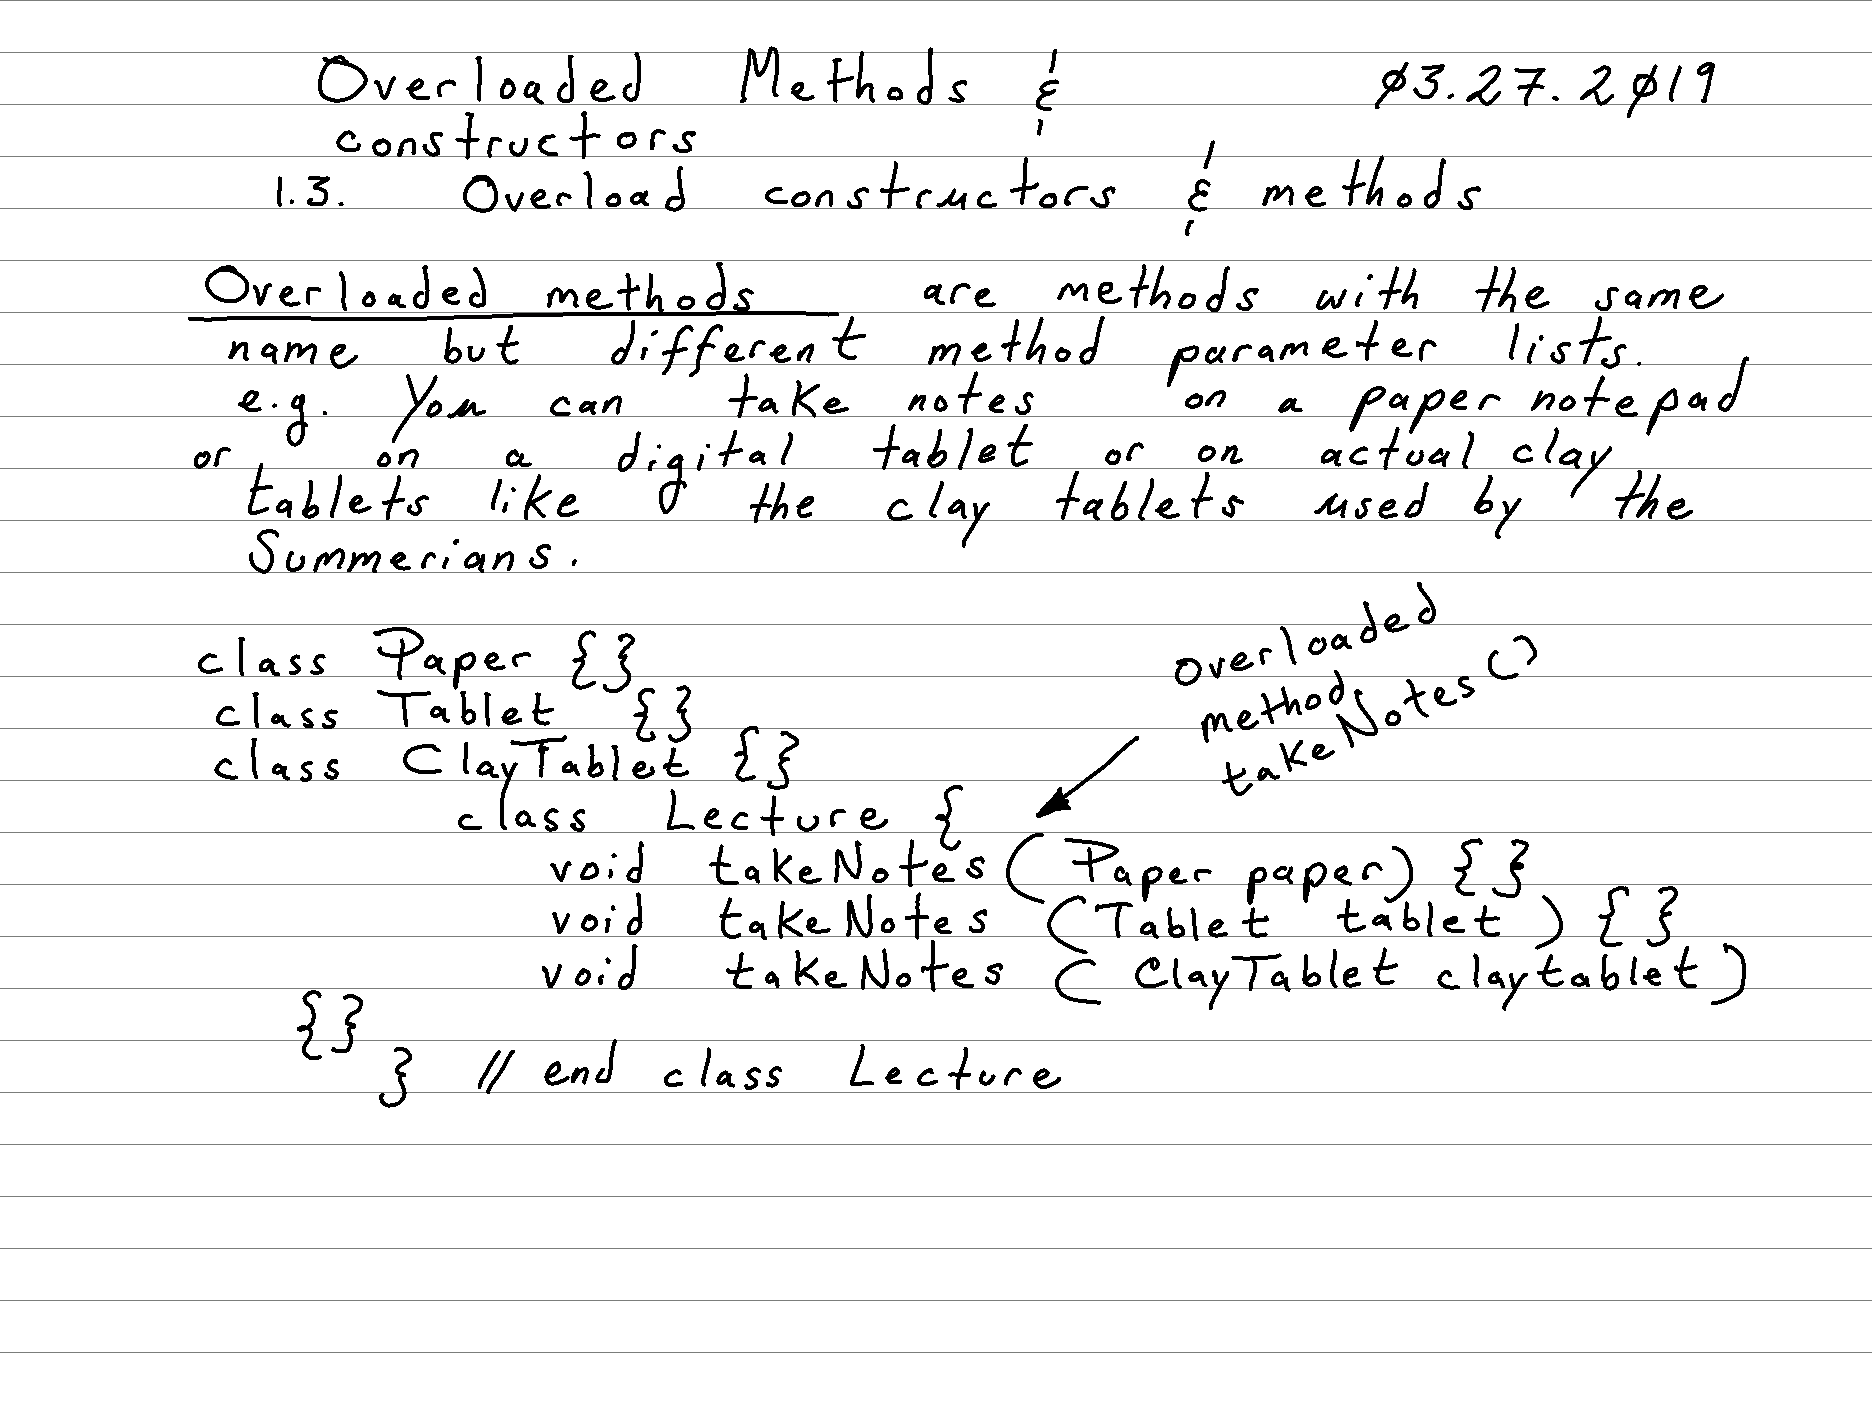 Overloaded Methods & ø3.27.2ø19
constructors
1.3. Overload constructors & methods
Overloaded methods are methods with the same
name but different method parameter lists.
e.g. You can take notes on a paper notepad
or on a digital tablet or on actual clay
tablets like the clay tablets used by the
Summerians.
class Paper {}
class Tablet {}
class ClayTablet {}
overloaded
method
takeNotes()
class Lecture {
void takeNotes(Paper paper) {}
void takeNotes (Tablet tablet) {}
void takeNotes (ClayTablet claytablet)
{}
} // end class Lecture